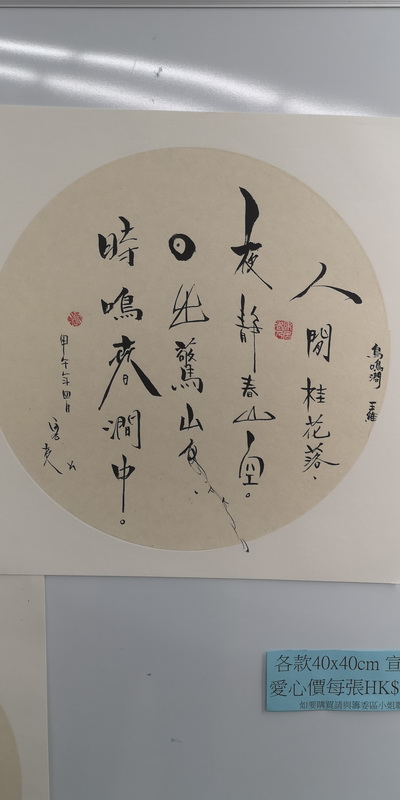 鳥鳴澗 王維
人閒桂花落.
夜靜春山空。
⊙出驚山鳥.
時鳴春澗中。
甲午年四月
各款40x40cm 宣
愛心價每張HK$
如要購買請與籌委區小姐